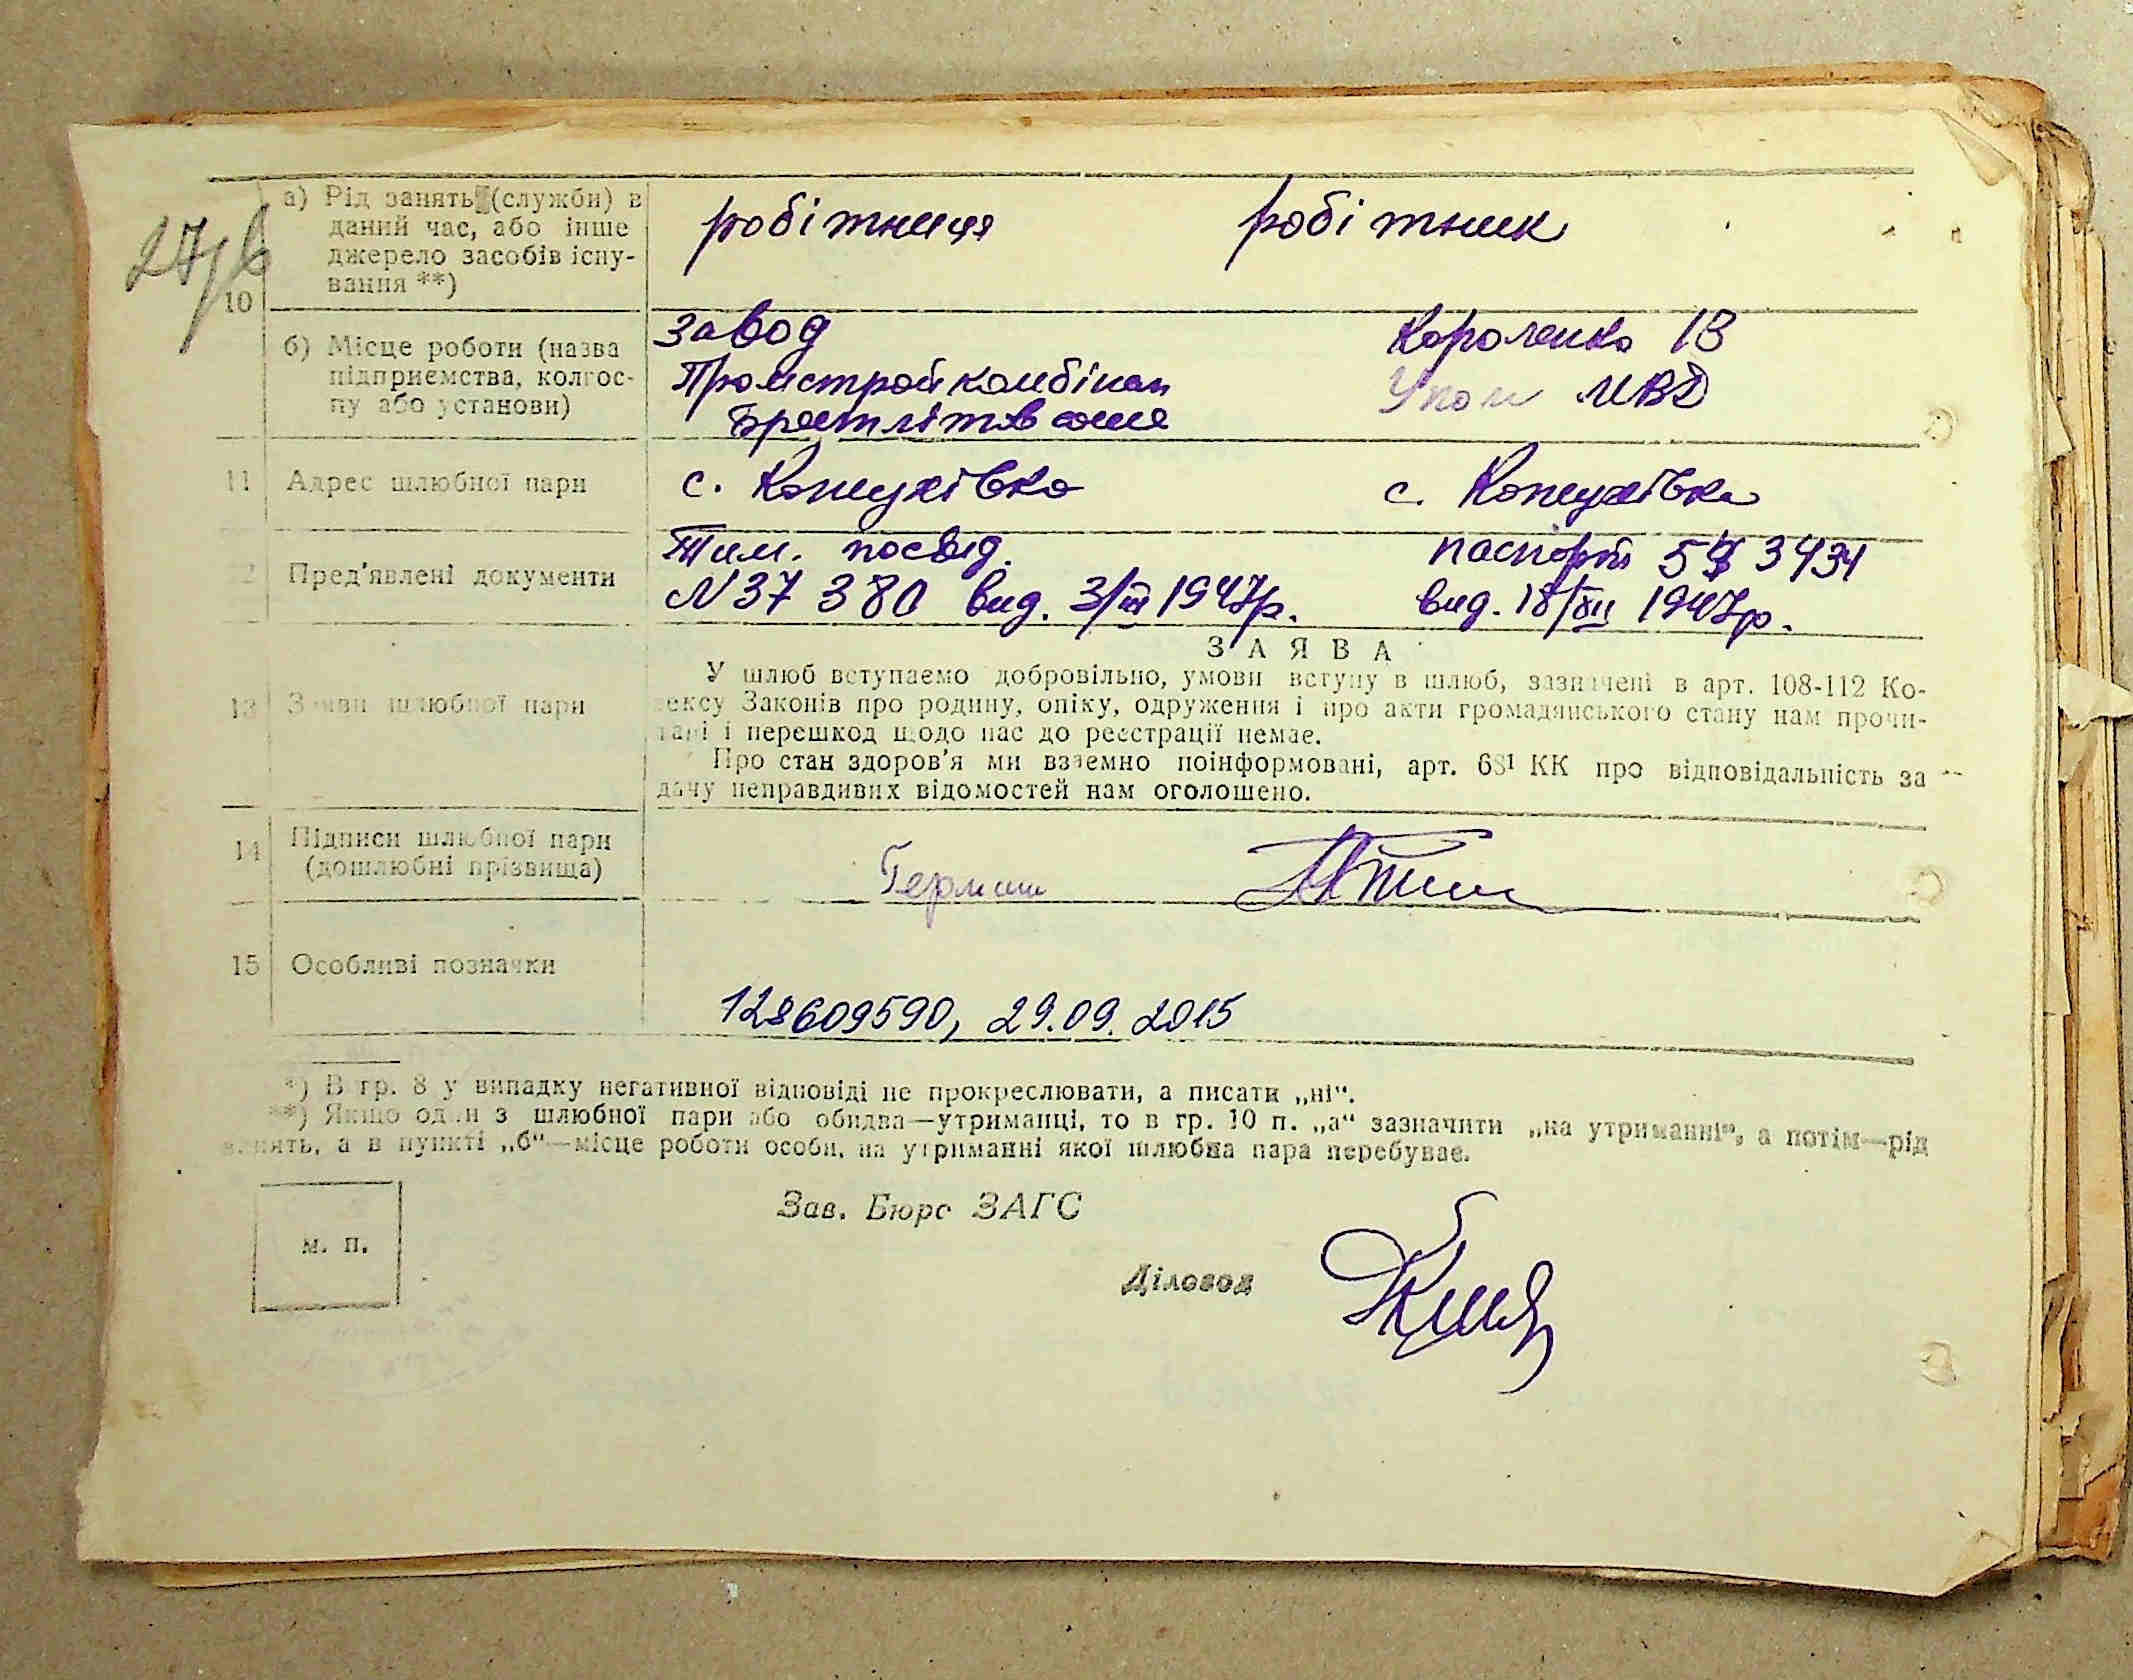 27/в
а) Рід занять (служби) в
даний час, або інше
джерело засобів існу-
вання **)
робітниця робітник
10
б) Місце роботи (назва
підприємства, колгос-
пу або установи)
завод Короленко 13
Промстройкомбінат Упом МВД
11 Адрес шлюбної пари с. Кожухівка с. Кожухівка
Пред'явлені документи
Тим. посвід. паспорт
N 37 380 вид. 3/III 1947р. вид. 18/XII 1947р.
ЗАЯВА
13 Заяви шлюбної пари
У шлюб вступаємо добровільно, умови вступу в шлюб, зазначені в арт. 108-112 Ко-
дексу Законів про родину, опіку, одруження і про акти громадянського стану нам прочи-
тані і перешкод щодо нас до реєстрації немає.
Про стан здоров'я ми взаємно поінформовані, арт. 68¹ КК про відповідальність за
дачу неправдивих відомостей нам оголошено.
14 Підписи шлюбної пари
(дошлюбні прізвища)
Герман
15 Особливі позначки
128609590, 29.09.2015
*) В гр. 8 у випадку негативної відповіді не прокреслювати, а писати „ні“.
**) Якщо один з шлюбної пари або обидва—утриманці, то в гр. 10 п. „а“ зазначити „на утриманні“, а потім—рід
занять, а в пункті „б“—місце роботи особи, на утриманні якої шлюбна пара перебуває.
Зав. Бюро ЗАГС
м. п.
Діловод